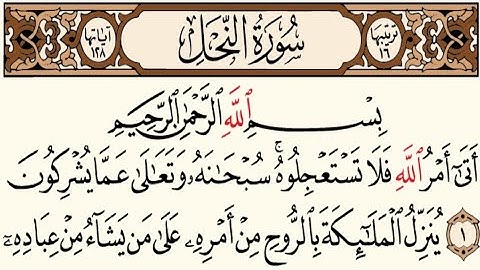 ترتيبها ١٦ سُورَةُ النَّحْلِ آياتها ١٢٨
بِسْمِ اللَّهِ الرَّحْمَٰنِ الرَّحِيمِ
أَتَىٰٓ أَمْرُ اللَّهِ فَلَا تَسْتَعْجِلُوهُ ۚ سُبْحَانَهُۥ وَتَعَالَىٰ عَمَّا يُشْرِكُونَ
١ يُنَزِّلُ الْمَلَٰٓئِكَةَ بِالرُّوحِ مِنْ أَمْرِهِۦ عَلَىٰ مَن يَشَآءُ مِنْ عِبَادِهِۦٓ